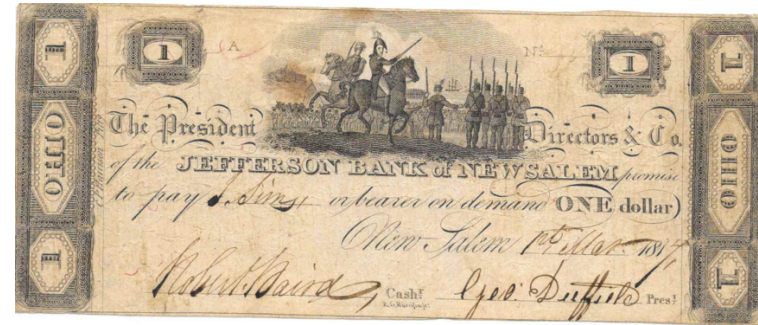 1 1 A No 1 1
OHIO The President Directors & Co. OHIO
of the JEFFERSON BANK of NEW SALEM promise
to pay J. Sims or bearer on demand ONE dollar)
1 New Salem 1st Mar. 1817 1
Robert Baird Cashr. Geo: Duffield Prest.